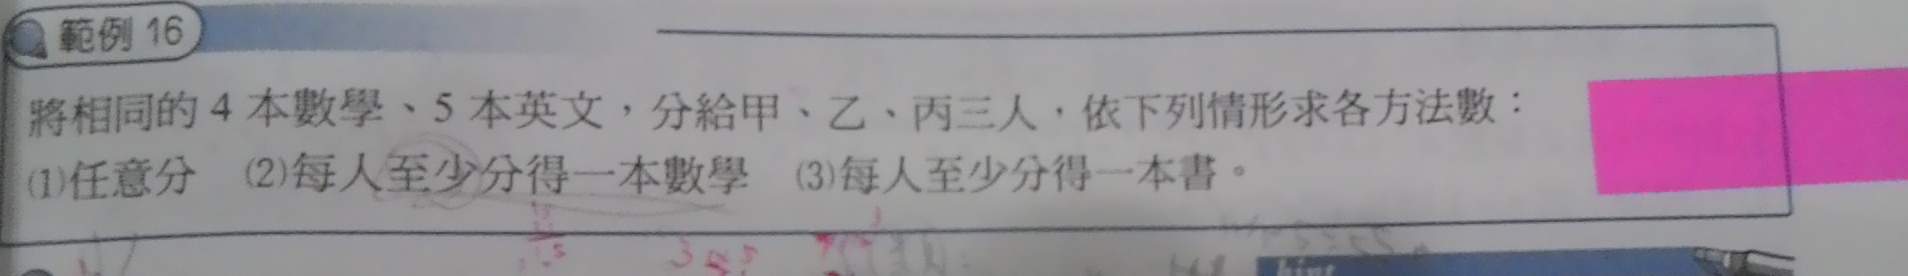 範例 16
將相同的 4 本數學、5 本英文，分給甲、乙、丙三人，依下列情形求各方法數：
⑴任意分　⑵每人至少分得一本數學　⑶每人至少分得一本書。
hint